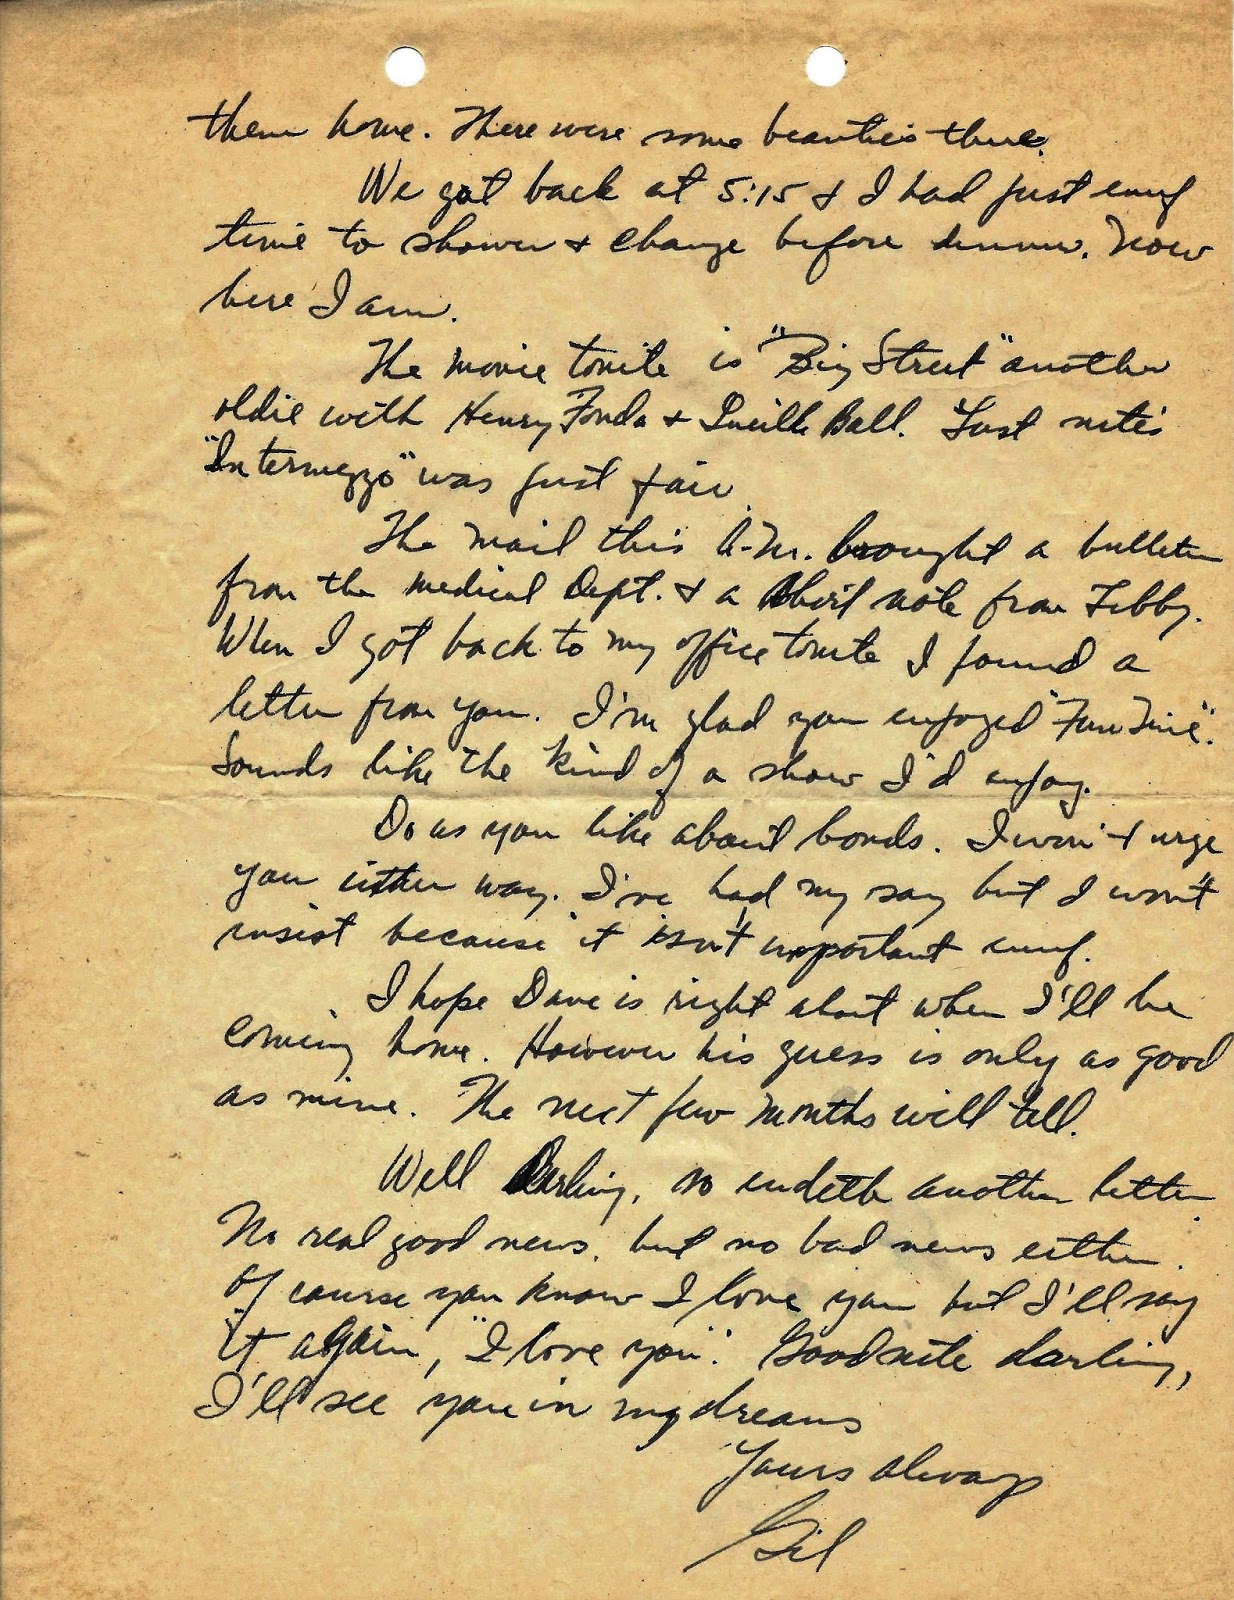 them home. There were some beauties there.
We got back at 5:15 & I had just enuf
time to shower & change before dinner. Now
here I am.
The movie tonite is "Big Street" another
oldie with Henry Fonda & Lucille Ball. Last nite's
"Intermezzo" was just fair.
The mail this A.M. brought a bulletin
from the medical Dept. & a short note from Libby.
When I got back to my office tonite I found a
letter from you. I'm glad you enjoyed "Fun Time".
Sounds like the kind of a show I'd enjoy.
Do as you like about bonds. I won't urge
you either way. I've had my say but I won't
insist because it isn't important enuf.
I hope Dave is right about when I'll be
coming home. However his guess is only as good
as mine. The next few months will tell.
Well Darling, so endeth another letter.
No real good news, but no bad news either.
Of course you know I love you but I'll say
it again, "I love you". Goodnite darling,
I'll see you in my dreams
Yours always
Gil